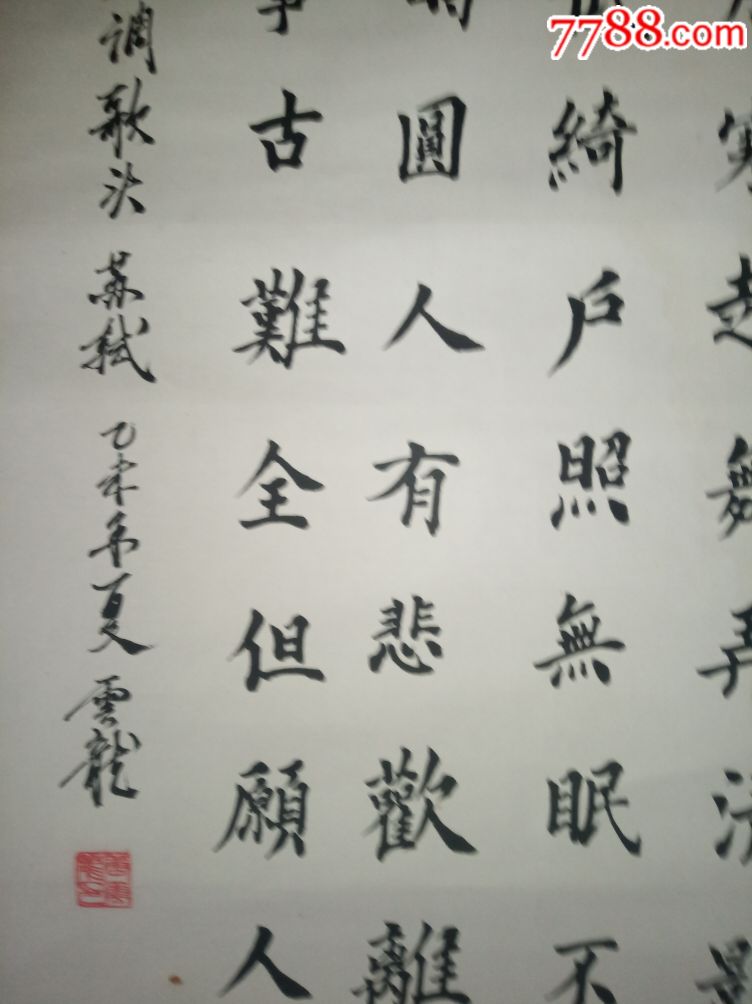 7788.com
寒起舞弄清影
綺戶照無眠不
圓人有悲歡離
事古難全但願人
調歌头 苏轼 乙未年夏 雲龍